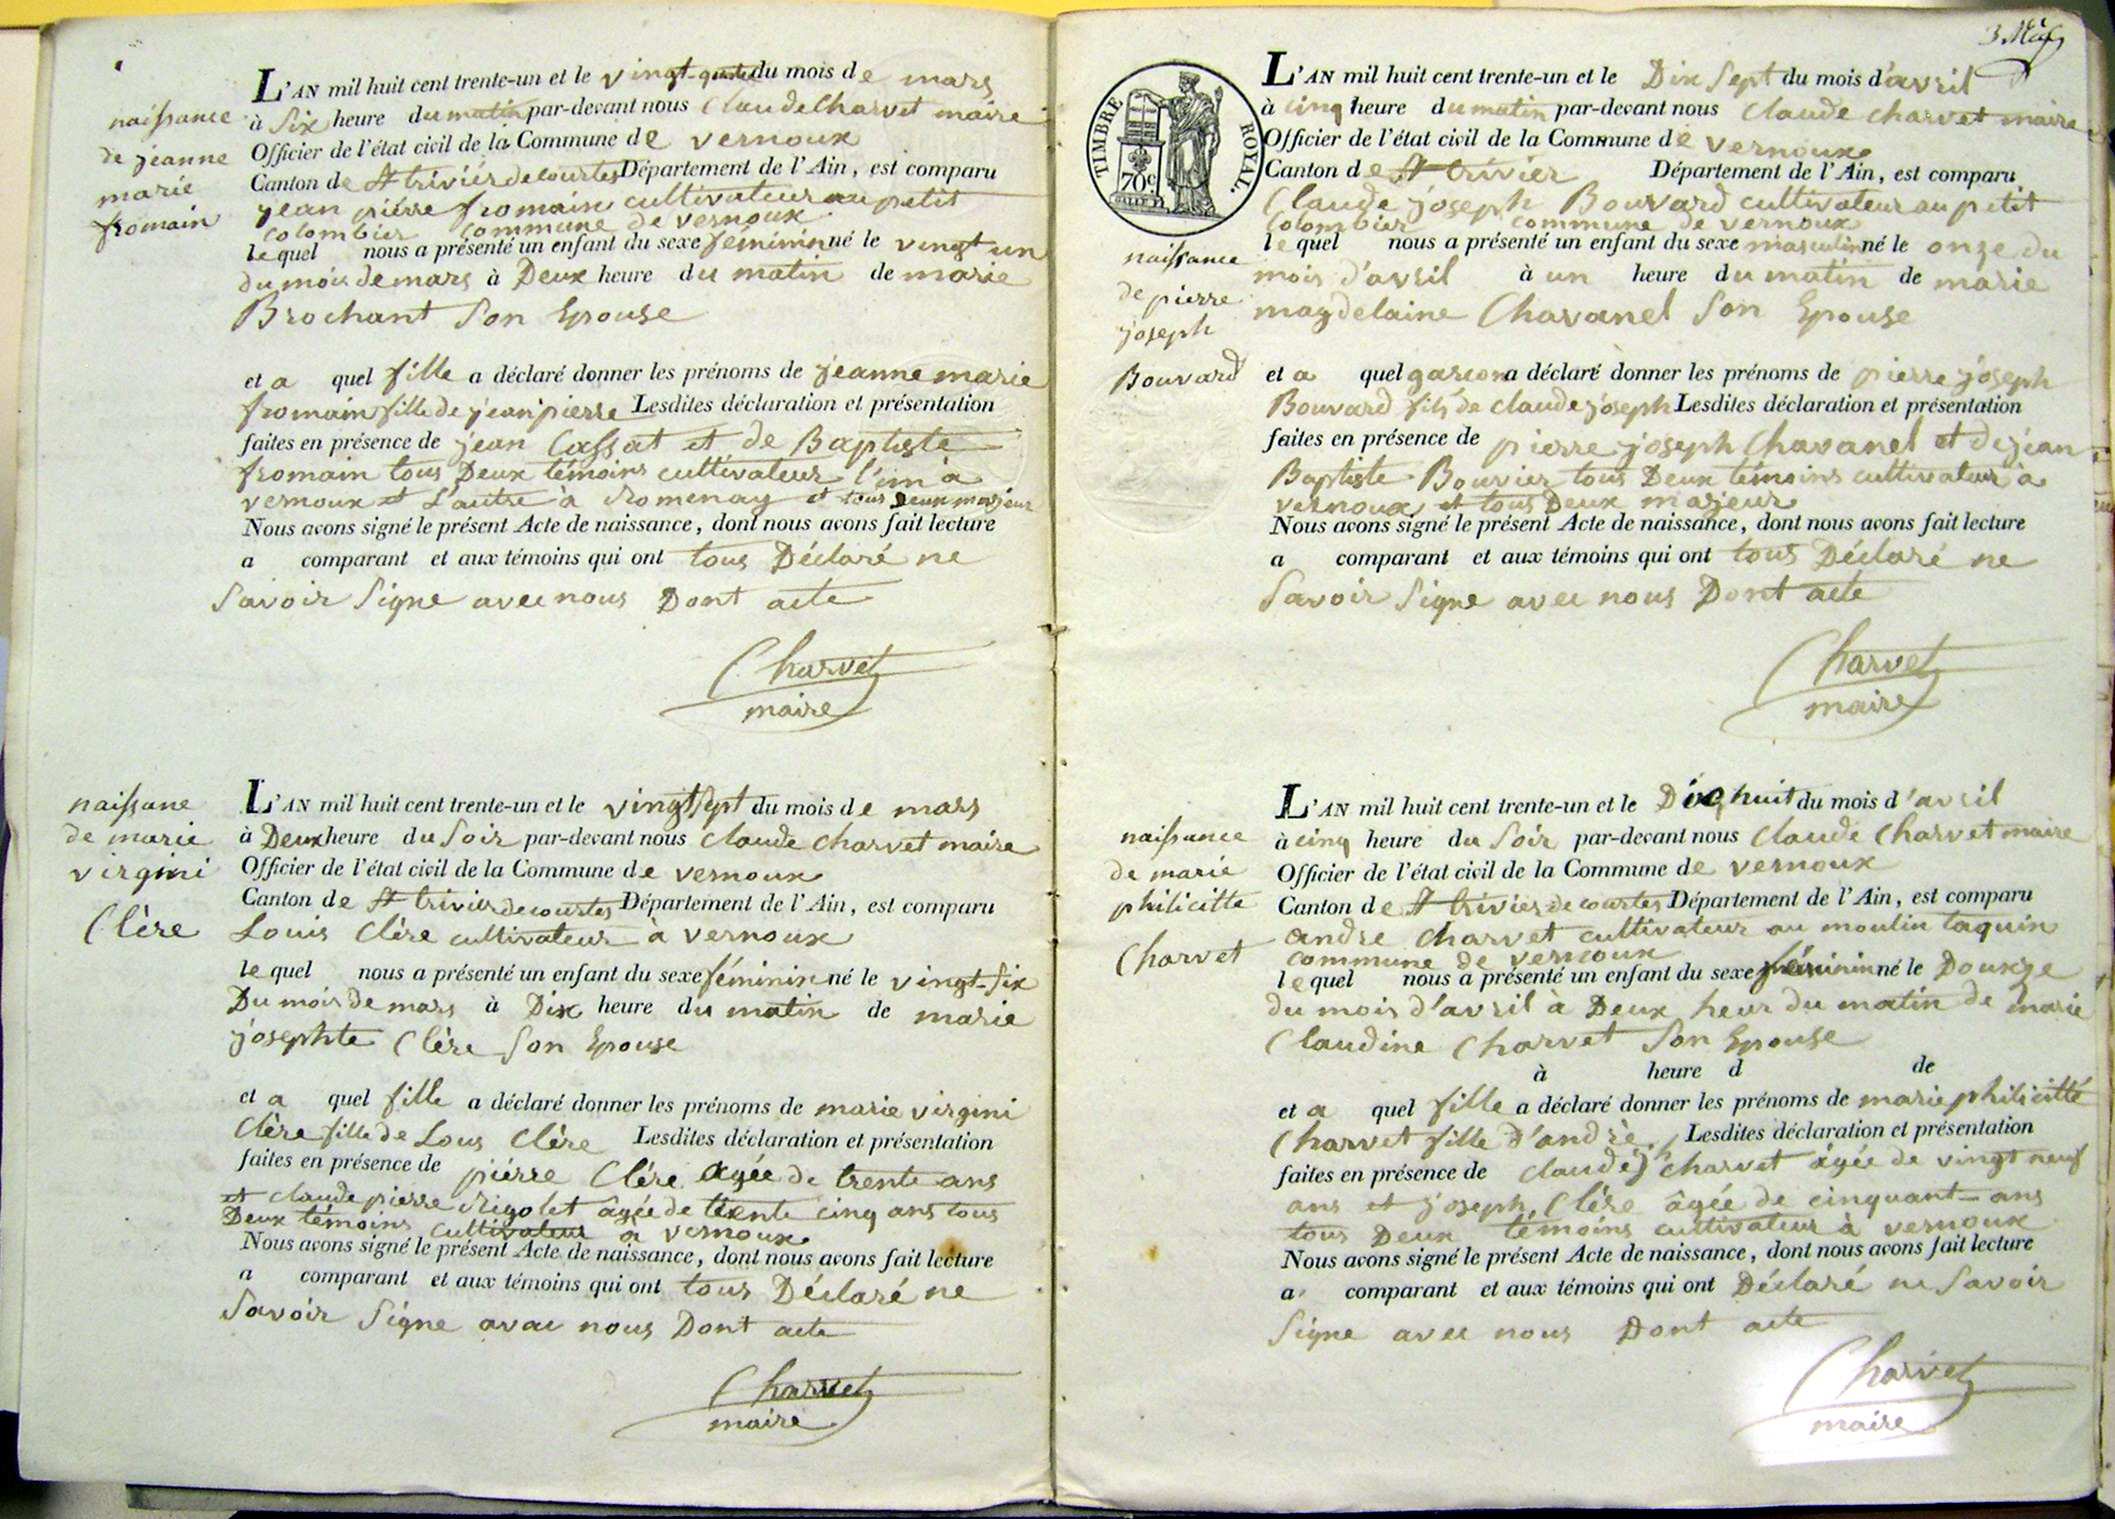 naissance
de jeanne
marie
fromain
L'AN mil huit cent trente-un et le vingt-quatre du mois de mars
à Six heure du matin par-devant nous Claude Charvet maire
Officier de l'état civil de la Commune de vernoux
Canton de St trivier de courtes Département de l'Ain, est comparu
jean piérre fromain cultivateur au petit
colombier commune de vernoux
lequel nous a présenté un enfant du sexe féminin né le vingt un
du mois de mars à Deux heure du matin de marie
Brochant Son Epouse
et a quel fille a déclaré donner les prénoms de jeanne marie
fromain fille de jean pierre Lesdites déclaration et présentation
faites en présence de jean Cassat et de Baptiste
fromain tous Deux témoins cultivateur l'un à
vernoux et L'autre à romenay et tous Deux majeur
Nous avons signé le présent Acte de naissance, dont nous avons fait lecture
a comparant et aux témoins qui ont tous Déclaré ne
Savoir Signe avec nous Dont acte
Charvet
maire
naissane
de marie
virgini
Clère
L'AN mil huit cent trente-un et le vingt Sept du mois de mars
à Deux heure du Soir par-devant nous Claude Charvet maire
Officier de l'état civil de la Commune de vernoux
Canton de St trivier de courtes Département de l'Ain, est comparu
Louis Clère cultivateur à vernoux
lequel nous a présenté un enfant du sexe féminin né le vingt-Six
Du mois de mars à Dix heure du matin de marie
josephte Clère Son Epouse
et a quel fille a déclaré donner les prénoms de marie virgini
Clère fille de Lous Clère Lesdites déclaration et présentation
faites en présence de piérre Clére agée de trente ans
et claude pierre rigolet âgée de trente cinq ans tous
Deux témoins cultivateur à vernoux
Nous avons signé le présent Acte de naissance, dont nous avons fait lecture
a comparant et aux témoins qui ont tous Déclaré ne
Savoir Signe avec nous Dont acte
Charvet
maire
TIMBRE ROYAL.
70c.
naissance
de pierre
joseph
Bouvard
L'AN mil huit cent trente-un et le Dix Sept du mois d'avril
à cinq heure du matin par-devant nous Claude Charvet maire
Officier de l'état civil de la Commune de vernoux
Canton de St trivier Département de l'Ain, est comparu
Claude joseph Bouvard cultivateur au petit
Colombier commune de vernoux
lequel nous a présenté un enfant du sexe masculin né le onze du
mois d'avril à un heure du matin de marie
magdelaine Chavanel Son Epouse
et a quel garcon a déclaré donner les prénoms de pierre joseph
Bouvard fils de claude joseph Lesdites déclaration et présentation
faites en présence de pierre joseph Chavanel et de jean
Baptiste Bouvier tous Deux témoins cultivateur à
vernoux et tous Deux majeur
Nous avons signé le présent Acte de naissance, dont nous avons fait lecture
a comparant et aux témoins qui ont tous Déclaré ne
Savoir Signe avec nous Dont acte
Charvet
maire
naissance
de marie
philicitte
Charvet
L'AN mil huit cent trente-un et le Dix huit du mois d'avril
à cinq heure du Soir par-devant nous Claude Charvet maire
Officier de l'état civil de la Commune de vernoux
Canton de St trivier de courtes Département de l'Ain, est comparu
andre Charvet cultivateur au moulin taquin
commune de vernoux
lequel nous a présenté un enfant du sexe féminin né le Douxze
du mois d'avril à Deux heur du matin de marie
Claudine Charvet Son Epouse
à heure d de
et a quel fille a déclaré donner les prénoms de marie philicitté
Charvet fille d'andré Lesdites déclaration et présentation
faites en présence de claude Charvet âgée de vingt neuf
ans et joseph Clère âgée de cinquant ans
tous Deux témoins cultivateur à vernoux
Nous avons signé le présent Acte de naissance, dont nous avons fait lecture
a comparant et aux témoins qui ont Déclaré ne Savoir
Signe avec nous Dont acte
Charvet
maire